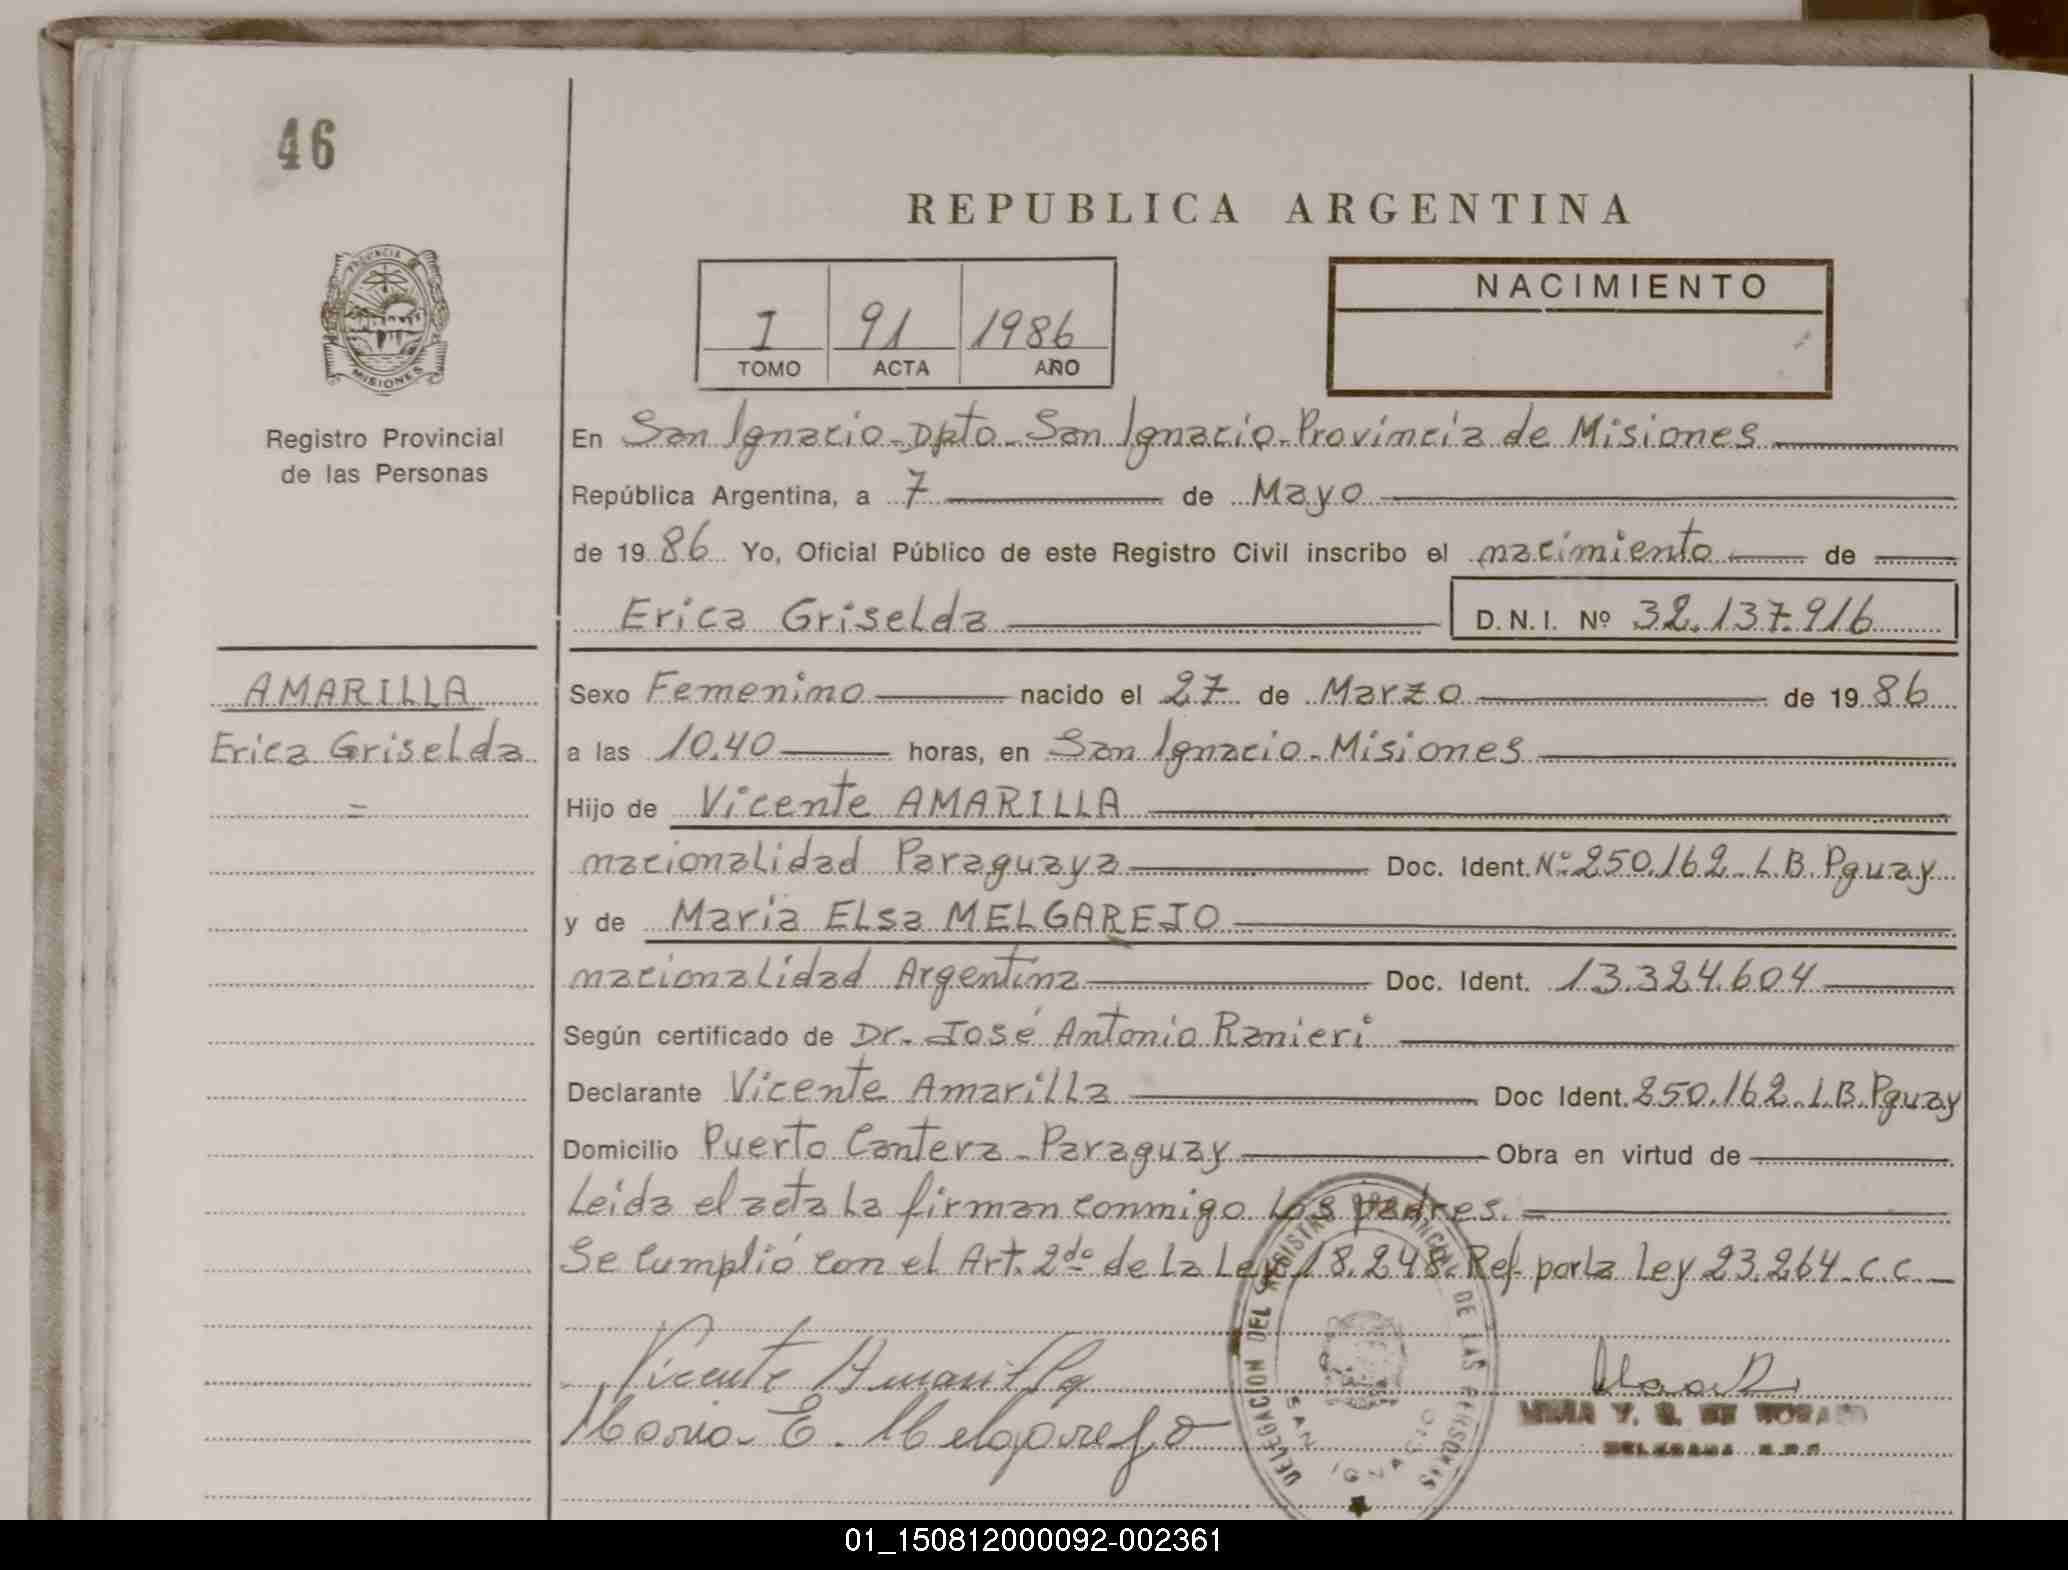 46
REPUBLICA ARGENTINA
PROVINCIA DE
MISIONES
Registro Provincial
de las Personas
I 91 1986
TOMO ACTA AÑO
NACIMIENTO
En San Ignacio - Dpto - San Ignacio - Provincia de Misiones
República Argentina, a 7 de Mayo
de 19 86 Yo, Oficial Público de este Registro Civil inscribo el nacimiento de
Erica Griselda D.N.I. Nº 32.137.916
AMARILLA
Erica Griselda
=
Sexo Femenino nacido el 27 de Marzo de 19 86
a las 10.40 horas, en San Ignacio - Misiones
Hijo de Vicente AMARILLA
nacionalidad Paraguaya Doc. Ident. Nº 250.162 - L.B. Pguay
y de Maria Elsa MELGAREJO
nacionalidad Argentina Doc. Ident. 13.324.604
Según certificado de Dr. José Antonio Ranieri
Declarante Vicente Amarilla Doc Ident. 250.162 - L.B. Pguay
Domicilio Puerto Cantera - Paraguay Obra en virtud de
Leida el acta la firman conmigo los padres. =
Se cumplió con el Art. 2do de la Ley 18.248. Ref. por la Ley 23.264 - C.C.
Vicente Amarilla
Maria E. Melgarejo
DELEGACION DEL REGISTRO PROVINCIAL DE LAS PERSONAS
SAN IGNACIO
DELEGADA
01_150812000092-002361